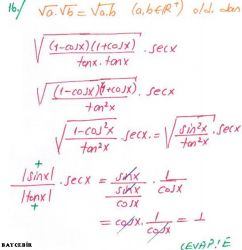 16/ √a.√b = √a.b (a,b∈R⁺) old. dan
√((1-cosx)(1+cosx) / tanx.tanx) . secx
√((1-cosx)(1+cosx) / tan²x) . secx
√(1-cos²x / tan²x) . secx. = √(sin²x / tan²x) . secx
+
|sinx| / |tanx| . secx = sinx / (sinx / cosx) . 1 / cosx
+
= cosx . 1 / cosx = 1
CEVAP: E
BAYCEBİR